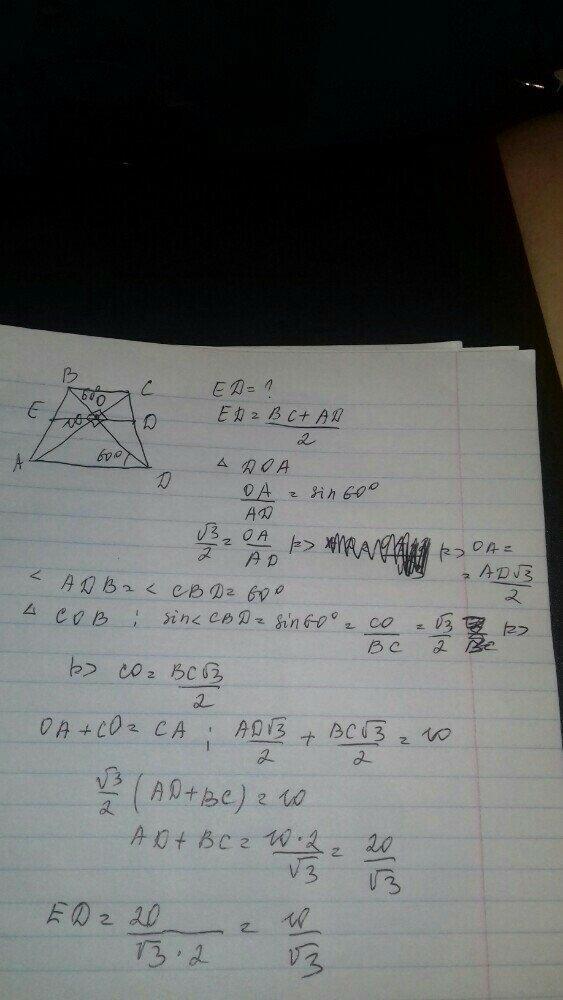 B C
60° O
E 10 D
A 60° D
ED = ?
ED = BC + AD / 2
△ DOA
OA / AD = sin 60°
√3 / 2 = OA / AD => => OA =
= AD√3 / 2
< ADB = < CBD = 60°
△ COB ; sin < CBD = sin 60° = CO / BC = √3 / 2 =>
=> CO = BC√3 / 2
OA + CO = CA ; AD√3 / 2 + BC√3 / 2 = 10
√3 / 2 (AD + BC) = 10
AD + BC = 10 · 2 / √3 = 20 / √3
ED = 20 / √3 · 2 = 10 / √3